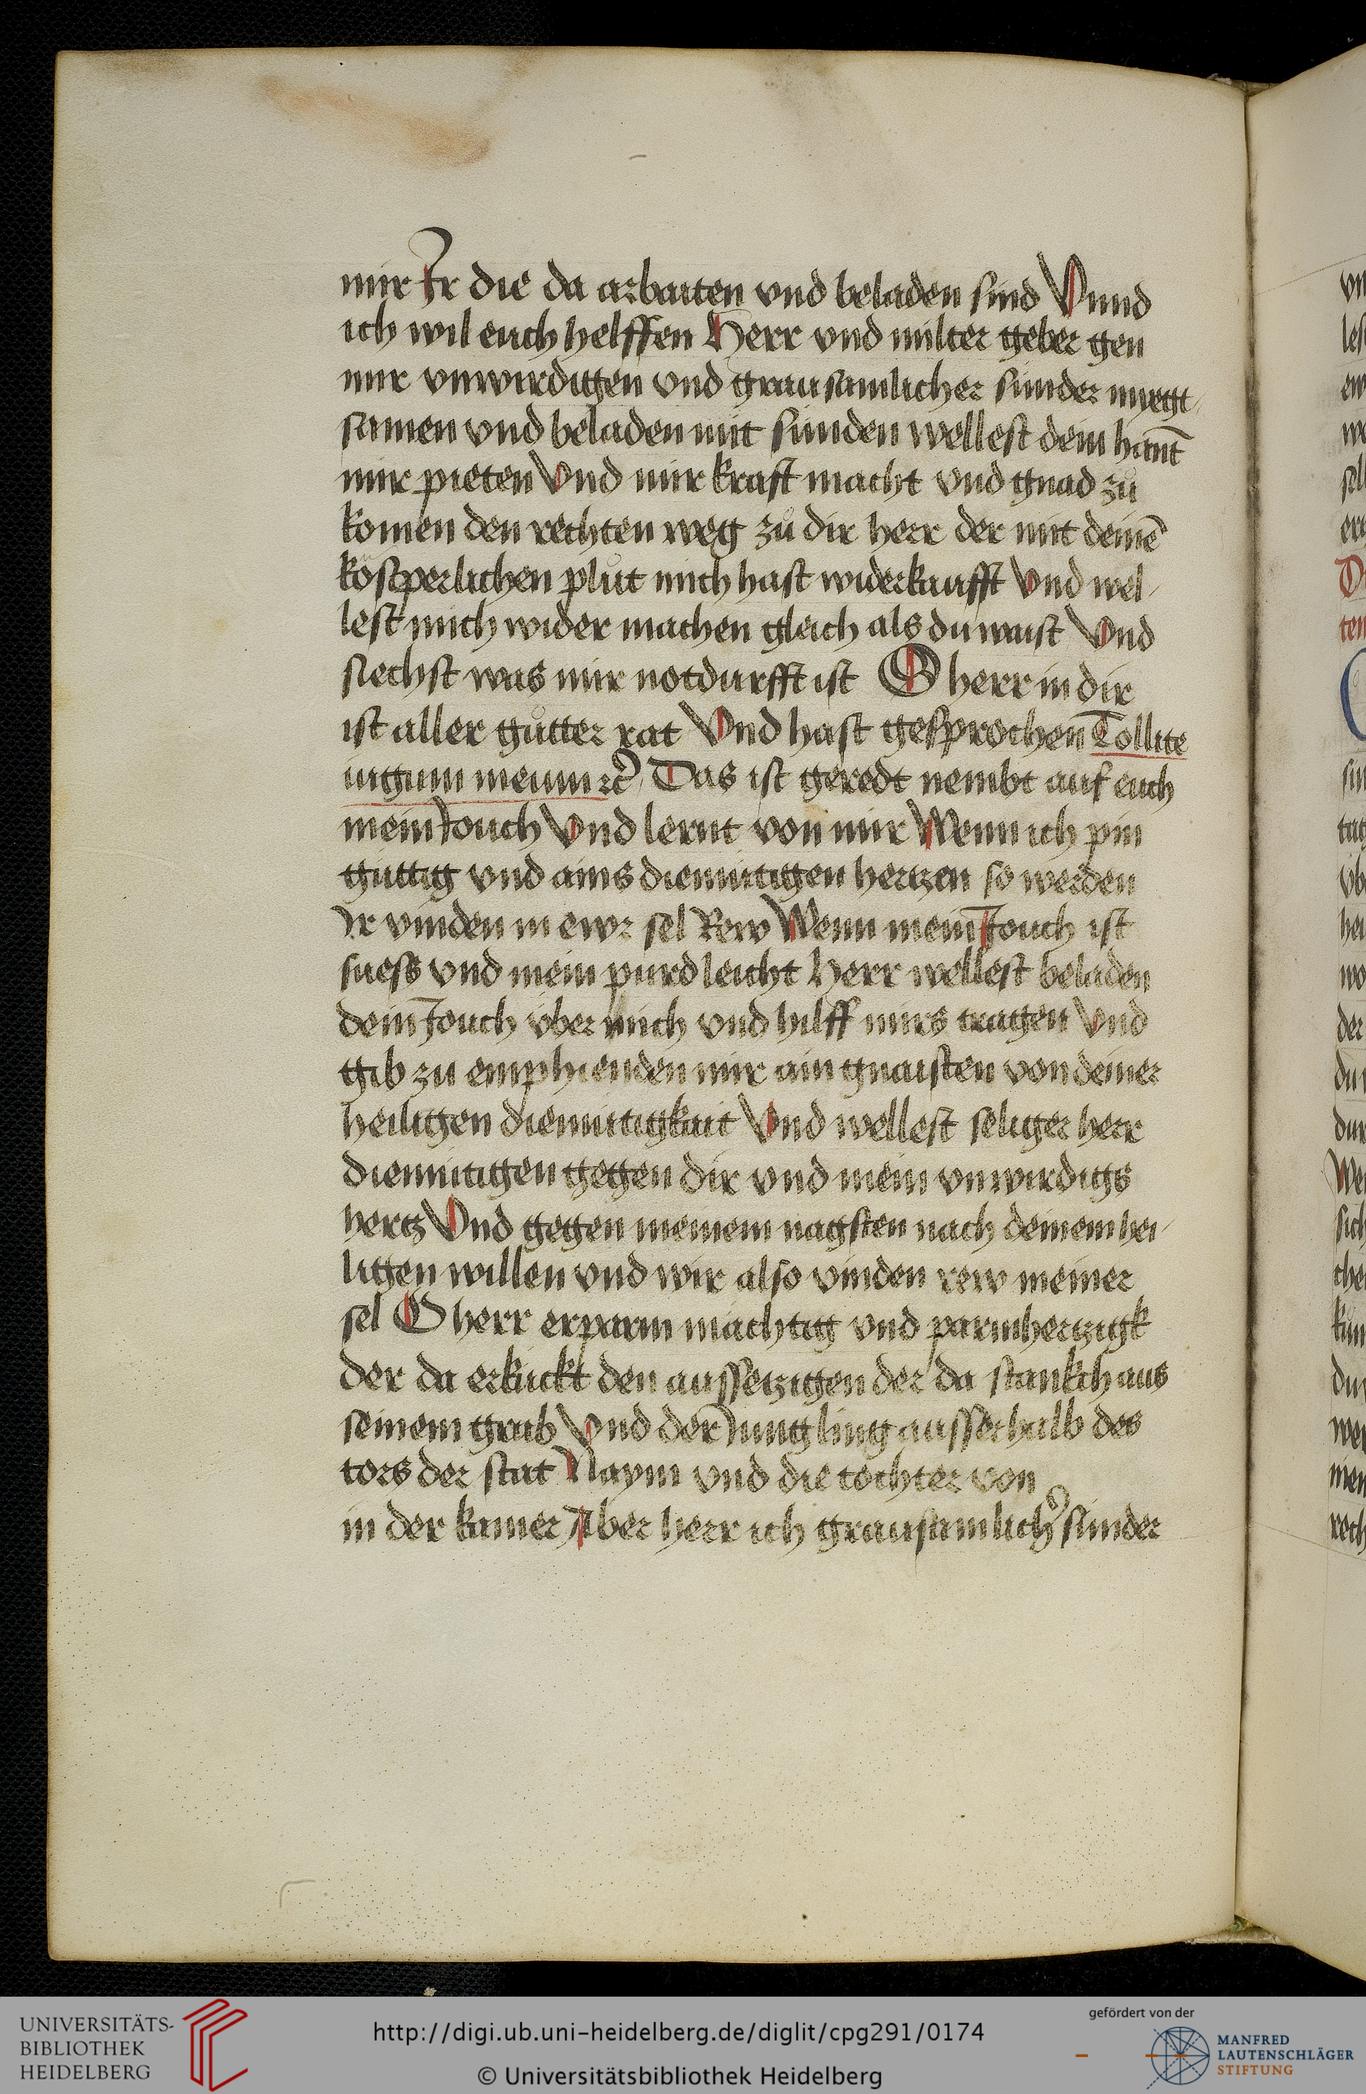 mir Ir die da arbaiten vnd beladen sind Vnnd
ich wil euch helffen Herr vnd milter geber gen
mir vnwirdigen vnd grausamlicher sunder
samen vnd beladen mit sünden wellest dein hant
mir pieten Vnd mir kraft macht vnd gnad zů
komen den rechten weg zů dir herr der mit deinē
köstperlichen plůt mich hast widerkaufft Vnd wel-
lest mich wider machen gleich als du waist Vnd
siechst was mir notdurfft ist O herr in dir
ist aller gůtter rat Vnd hast gesprochen Tollite
iugum meum ꝛc̄ Das ist geredt nembt auf euch
mein Jouch Vnd lernt von mir Wenn ich pin
güttig vnd ains diemütigen hertzen so werden
Ir vinden in ewr sel Rew Wenn mein Jouch ist
suess vnd mein purd leicht Herr wellest beladen
dein Jouch über mich vnd hilff mirs tragen Vnd
gib zu emphienden mir ain gnaisten von deiner
heiligen diemütigkait Vnd wellest seliger herr
diemütigen gegen dir vnd mein vnwirdigs
hertz Vnd gegen meinem nagsten nach deinem hei-
ligen willen vnd wir also vinden rew meiner
sel O herr erparm mächtig vnd parmhertzigk
der da erkückt den aussetzigen der da stankch aus
seinem grab Vnd der Jungling ausserhalb des
tors der stat Naym vnd die tochter von
in der kamer Aber herr ich grausamlichʾ sünder
UNIVERSITÄTS-
BIBLIOTHEK
HEIDELBERG
http://digi.ub.uni-heidelberg.de/diglit/cpg291/0174
© Universitätsbibliothek Heidelberg
gefördert von der
MANFRED
LAUTENSCHLÄGER
STIFTUNG